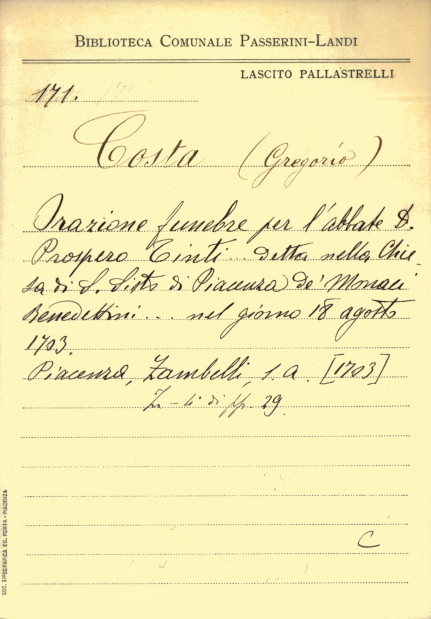 BIBLIOTECA COMUNALE PASSERINI-LANDI
LASCITO PALLASTRELLI
171.
Costa (Gregorio)
Orazione funebre per l'abbate D.
Prospero Tinti... detta nella Chie-
sa di S. Sisto di Piacenza de' Monaci
Benedettini... nel giorno 18 agosto
1703.
Piacenza, Zambelli, s. a. [1703]
di pp. 29
C
SOC. TIPOGRAFICA ED. PORTA - PIACENZA